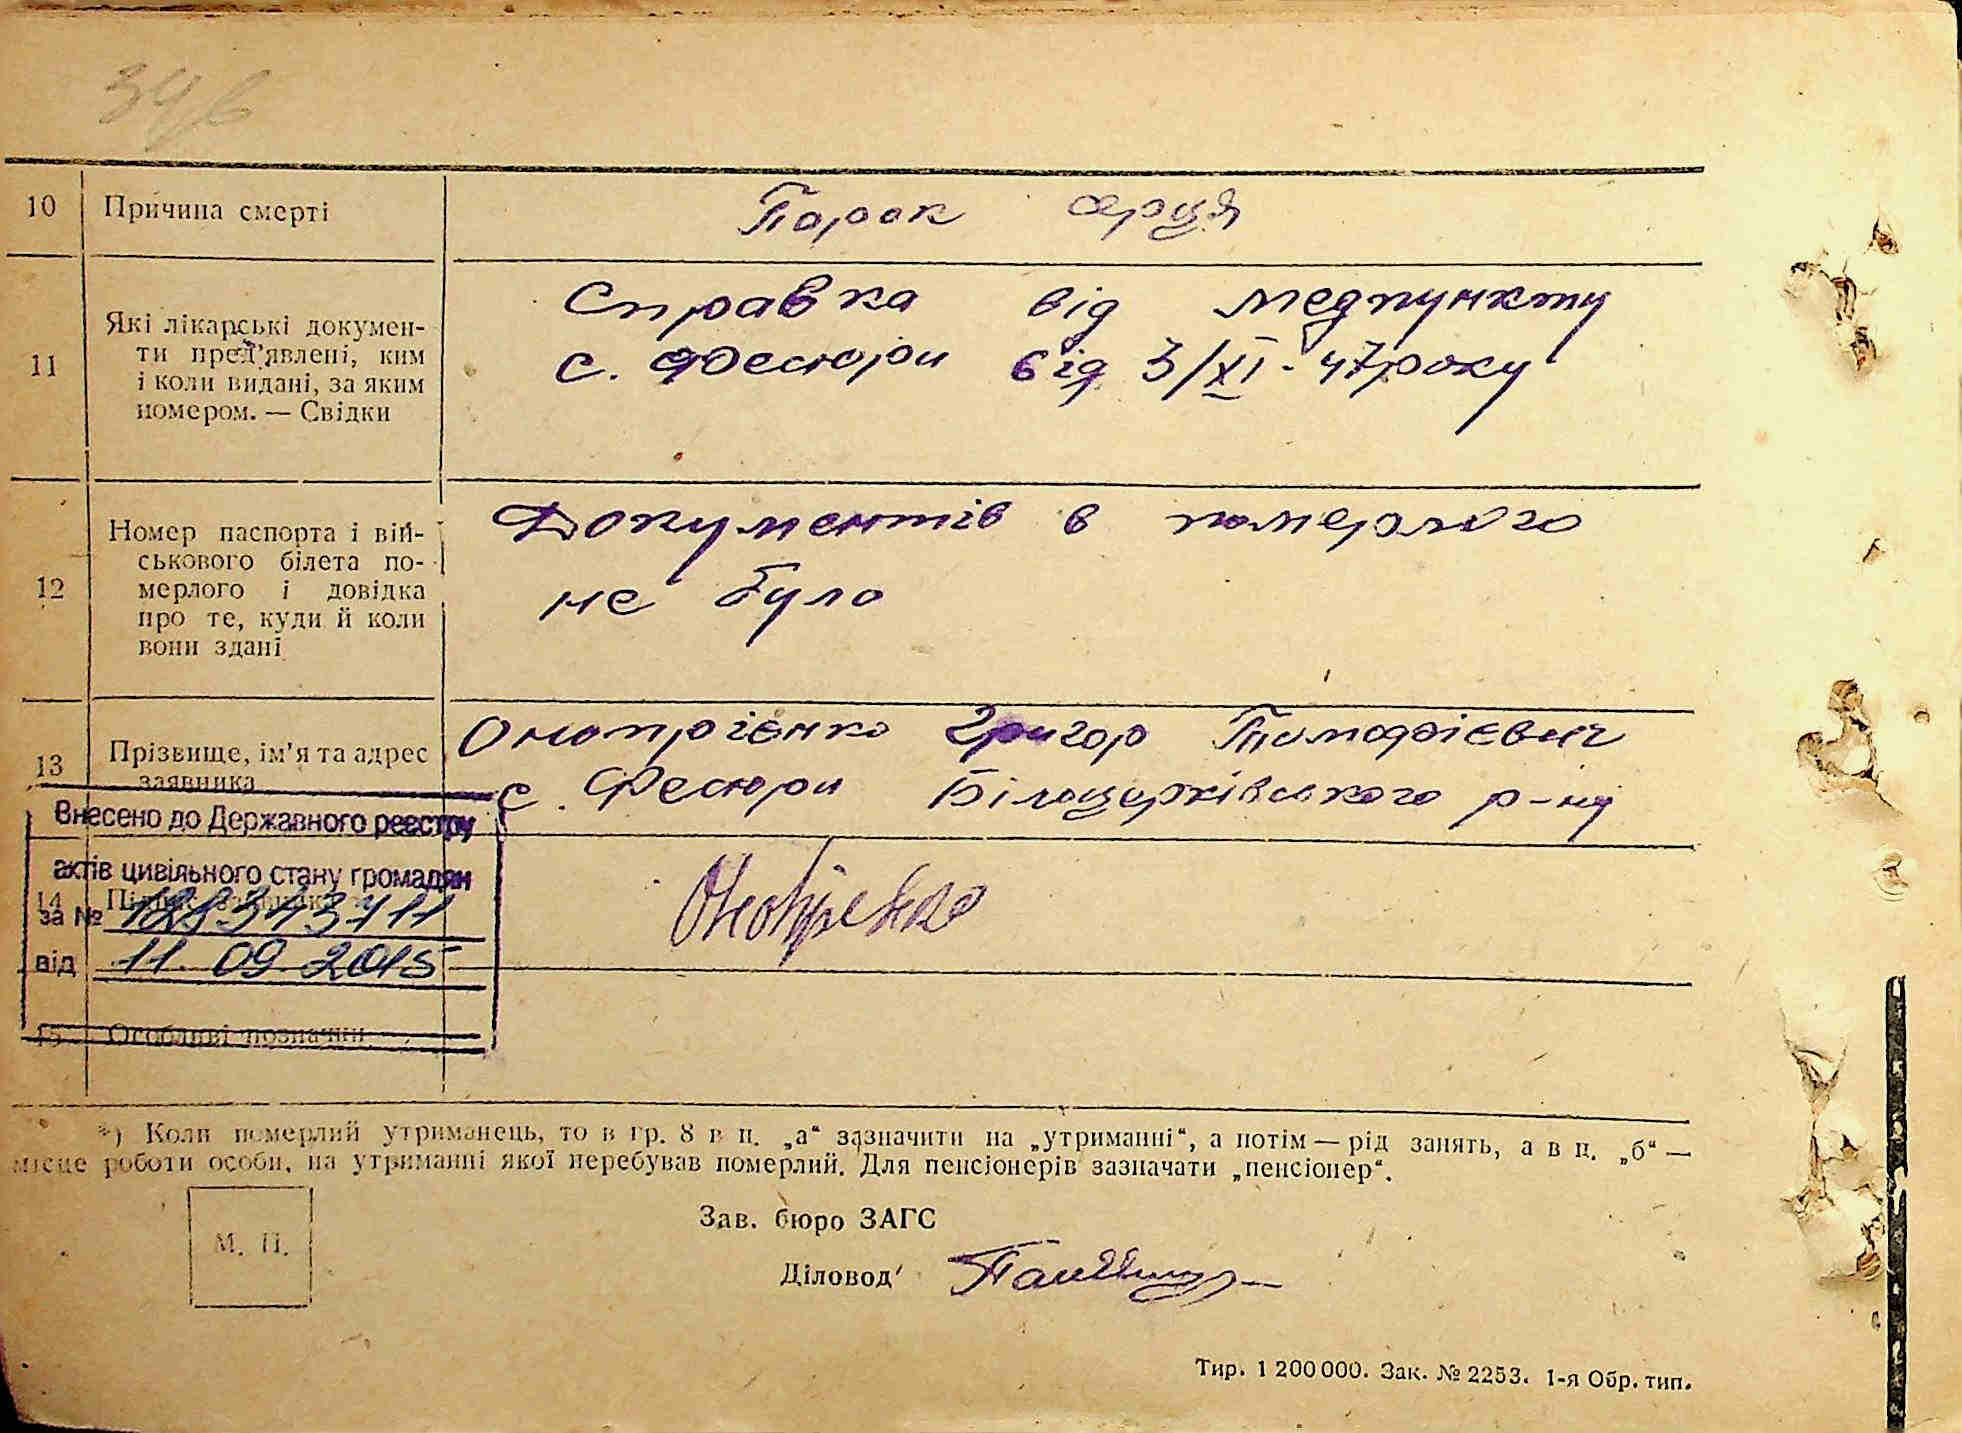 10 Причина смерті Порок серця
11 Які лікарські документи пред'явлені, ким і коли видані, за яким номером. — Свідки
Справка від медпункту
с. Фесюри від 3/XI-47 року
12 Номер паспорта і вій-
ськового білета по-
мерлого і довідка
про те, куди й коли
вони здані
Документів в померлого
не було
13 Прізвище, ім'я та адрес
заявника
Онопрієнко Григор Тимофієвич
с. Фесюри Білоцерківського р-ну
Внесено до Державного реєстру
актів цивільного стану громадян
14
за №
від 11.09.2015
15 Особливі позначки
*) Коли померлий утриманець, то в гр. 8 в п. „а“ зазначити на „утриманні“, а потім — рід занять, а в п. „б“ —
місце роботи особи, на утриманні якої перебував померлий. Для пенсіонерів зазначати „пенсіонер“.
М. П.
Зав. бюро ЗАГС
Діловод
Тир. 1 200 000. Зак. № 2253. 1-я Обр. тип.